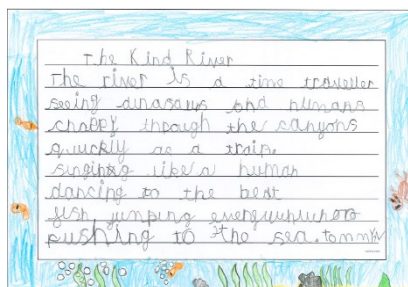 The Kind River
The river is a time traveller
seeing dinosaurs and humans
choppy through the canyons
quickly as a train
singing like a human
dancing to the beat
fish jumping everywhere
pushing to the sea. tommy